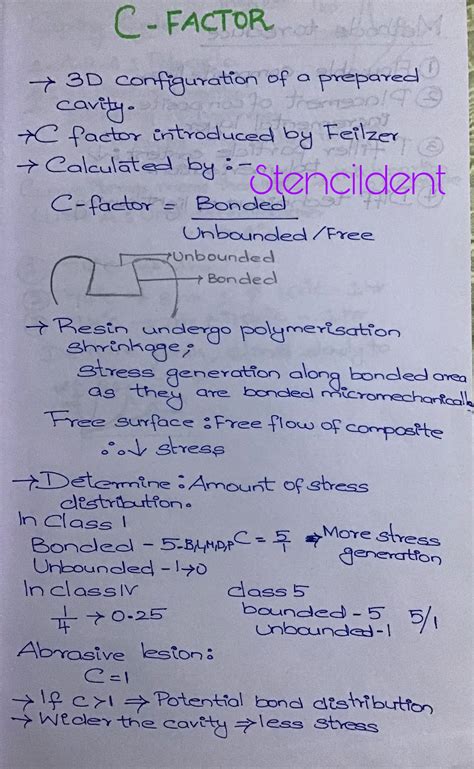 C-FACTOR
→ 3D configuration of a prepared
cavity.
→ C factor introduced by Feilzer
→ Calculated by :-
Stencildent
C-factor = Bonded
Unbounded/Free
Unbounded
Bonded
→ Resin undergo polymerisation
shrinkage;
stress generation along bonded area
as they are bonded micromechanically
Free surface : Free flow of composite
∴ ↓ stress
→ Determine : Amount of stress
distribution.
In Class I
Bonded - 5-B,L,M,D,P C = 5/1 → More stress
generation
Unbounded - 1→0
In class IV class 5
1/4 → 0.25 bounded - 5 5/1
unbounded-1
Abrasive lesion:
C=1
→ If C>1 ⇒ Potential bond distribution
→ Wider the cavity ⇒ less stress